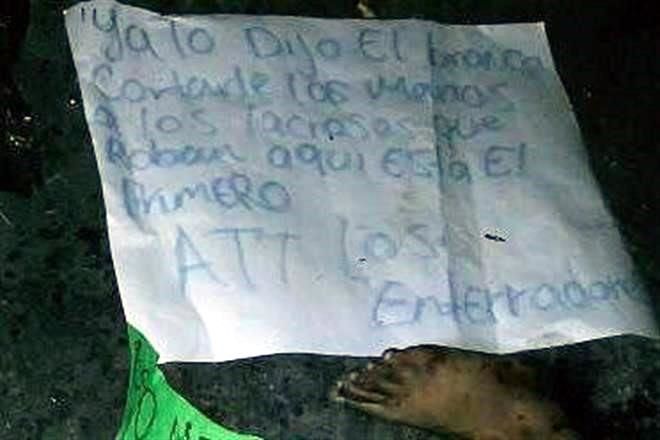 "Ya lo Dijo El bronco
Cortarle las manos
A los lacrosos que
Roban aqui ESta El
PRIMERO
ATT. Los
Enterradore